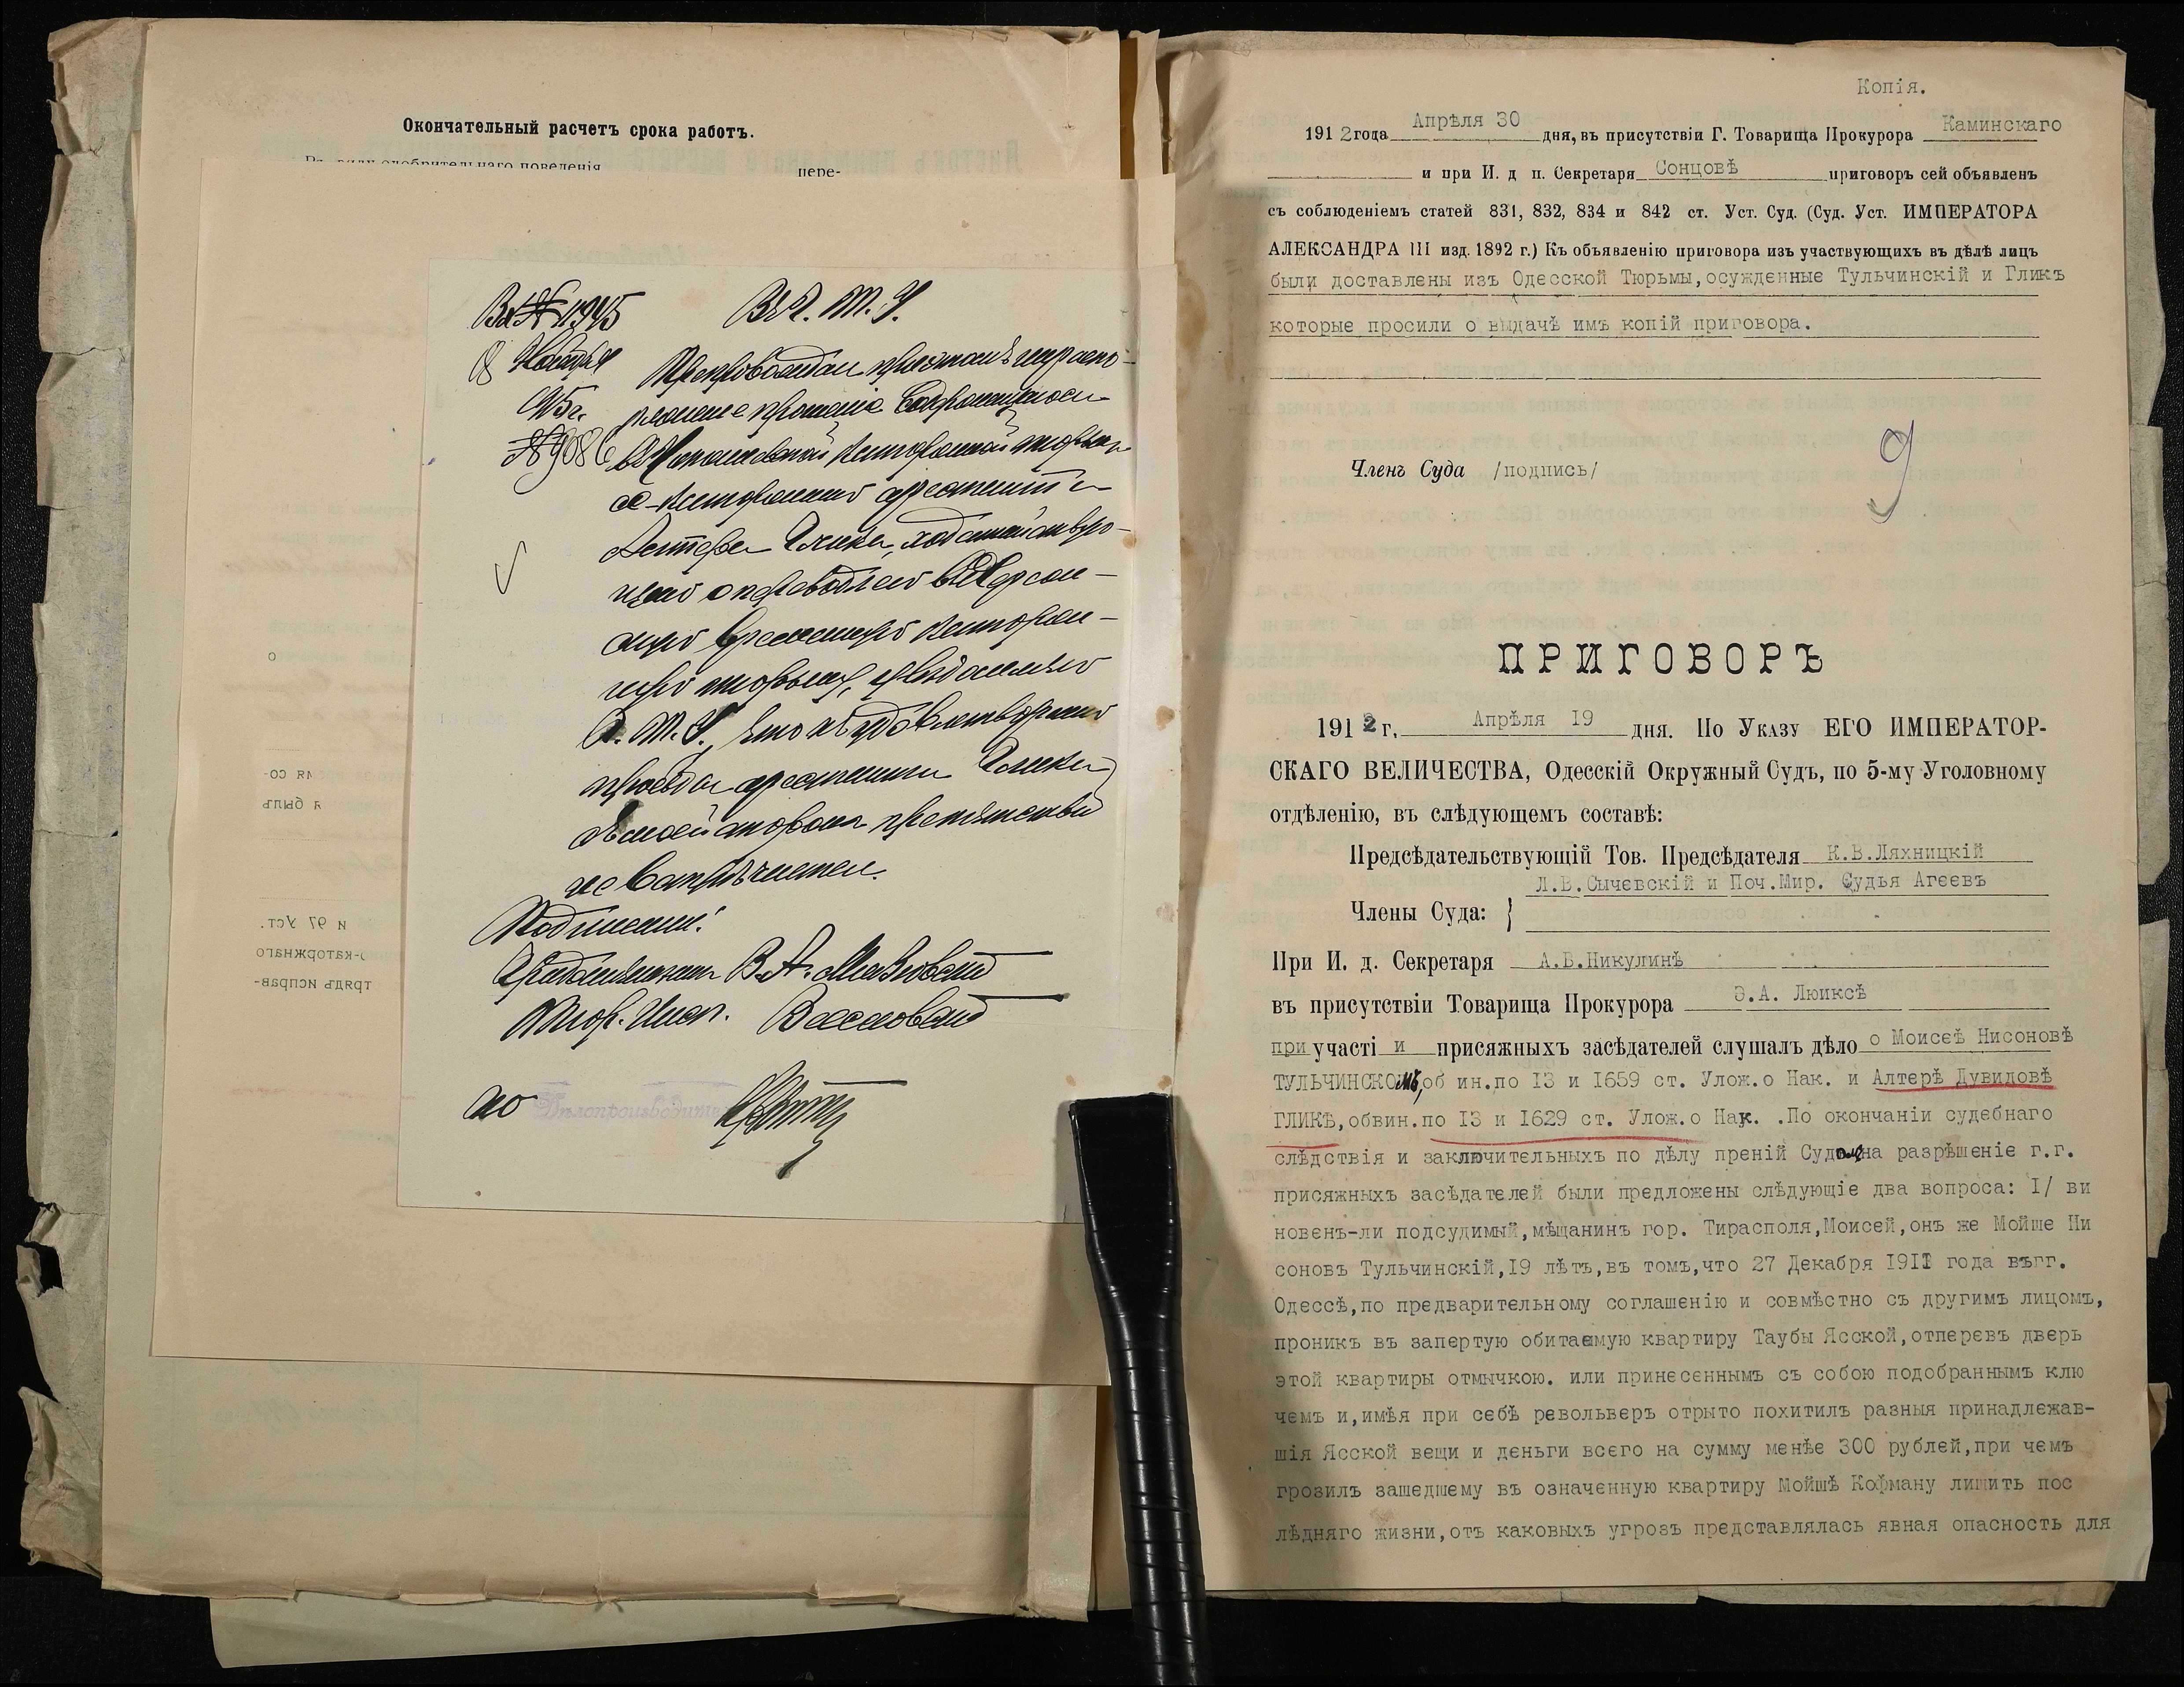 Окончательный расчетъ срока работъ.
Въ виду одобрительнаго поведенія пере-
Вх № 1945 В Г. Т. И.
8 Ноября Препровождая при этомъ на распо-
1915 г. ряженіе прошеніе содержащагося
№ 9086 въ Николаевской каторжной тюрьмѣ
с-каторжнаго арестанта
Алтера Глика, ходатайствую-
щаго о переводѣ его въ Херсон-
скую временную каторж-
ную тюрьму, увѣдомляю
Г. Т. И., что къ удовлетворенію
просьбы арестанта Глика
съ моей стороны препятствій
не встрѣчается.
Подписали:
Градоначальникъ В. А.
Тюр. Инсп.
Дѣлопроизводитель
Копія.
191 2 года Апрѣля 30 дня, въ присутствіи Г. Товарища Прокурора Каминскаго
и при И. д п. Секретаря Сонцовѣ приговоръ сей объявленъ
съ соблюденіемъ статей 831, 832, 834 и 842 ст. Уст. Суд. (Суд. Уст. ИМПЕРАТОРА
АЛЕКСАНДРА III изд. 1892 г.) Къ объявленію приговора изъ участвующихъ въ дѣлѣ лицъ
были доставлены изъ Одесской Тюрьмы,осужденные Тульчинскій и Гликъ
которые просили о выдачѣ имъ копій приговора.
9
Членъ Суда /подпись/
ПРИГОВОРЪ
191 2 г. Апрѣля 19 дня. По Указу ЕГО ИМПЕРАТОР-
СКАГО ВЕЛИЧЕСТВА, Одесскій Окружный Судъ, по 5-му Уголовному
отдѣленію, въ слѣдующемъ составѣ:
Предсѣдательствующій Тов. Предсѣдателя К.В.Ляхницкій
Л.В.Сычевскій и Поч.Мир. Судья Агеевъ
Члены Суда: }
При И. д. Секретаря А.В.Никулинѣ
въ присутствіи Товарища Прокурора Э.А. Люиксѣ
при участі и присяжныхъ засѣдателей слушалъ дѣло о Моисеѣ Нисоновѣ
ТУЛЬЧИНСКОМЪ,об ин.по 13 и 1659 ст. Улож.о Нак. и Алтерѣ Дувидовѣ
ГЛИКѢ,обвин.по 13 и 1629 ст. Улож.о Нак. .По окончаніи судебнаго
слѣдствія и заключительныхъ по дѣлу преній Судомъ на разрѣшеніе г.г.
присяжныхъ засѣдателей были предложены слѣдующіе два вопроса: I/ ви
новенъ-ли подсудимый,мѣщанинъ гор. Тирасполя,Моисей,онъ же Мойше Ни
соновъ Тульчинскій,19 лѣтъ,въ томъ,что 27 Декабря 1911 года въгг.
Одессѣ,по предварительному соглашенію и совмѣстно съ другимъ лицомъ,
проникъ въ запертую обитаемую квартиру Таубы Ясской,отперевъ дверь
этой квартиры отмычкою. или принесеннымъ съ собою подобраннымъ клю
чемъ и,имѣя при себѣ револьверъ отрыто похитилъ разныя принадлежав-
шія Ясской вещи и деньги всего на сумму менѣе 300 рублей,при чемъ
грозилъ зашедшему въ означенную квартиру Мойшѣ Кофману лишить пос
лѣдняго жизни,отъ каковыхъ угрозъ представлялась явная опасность для